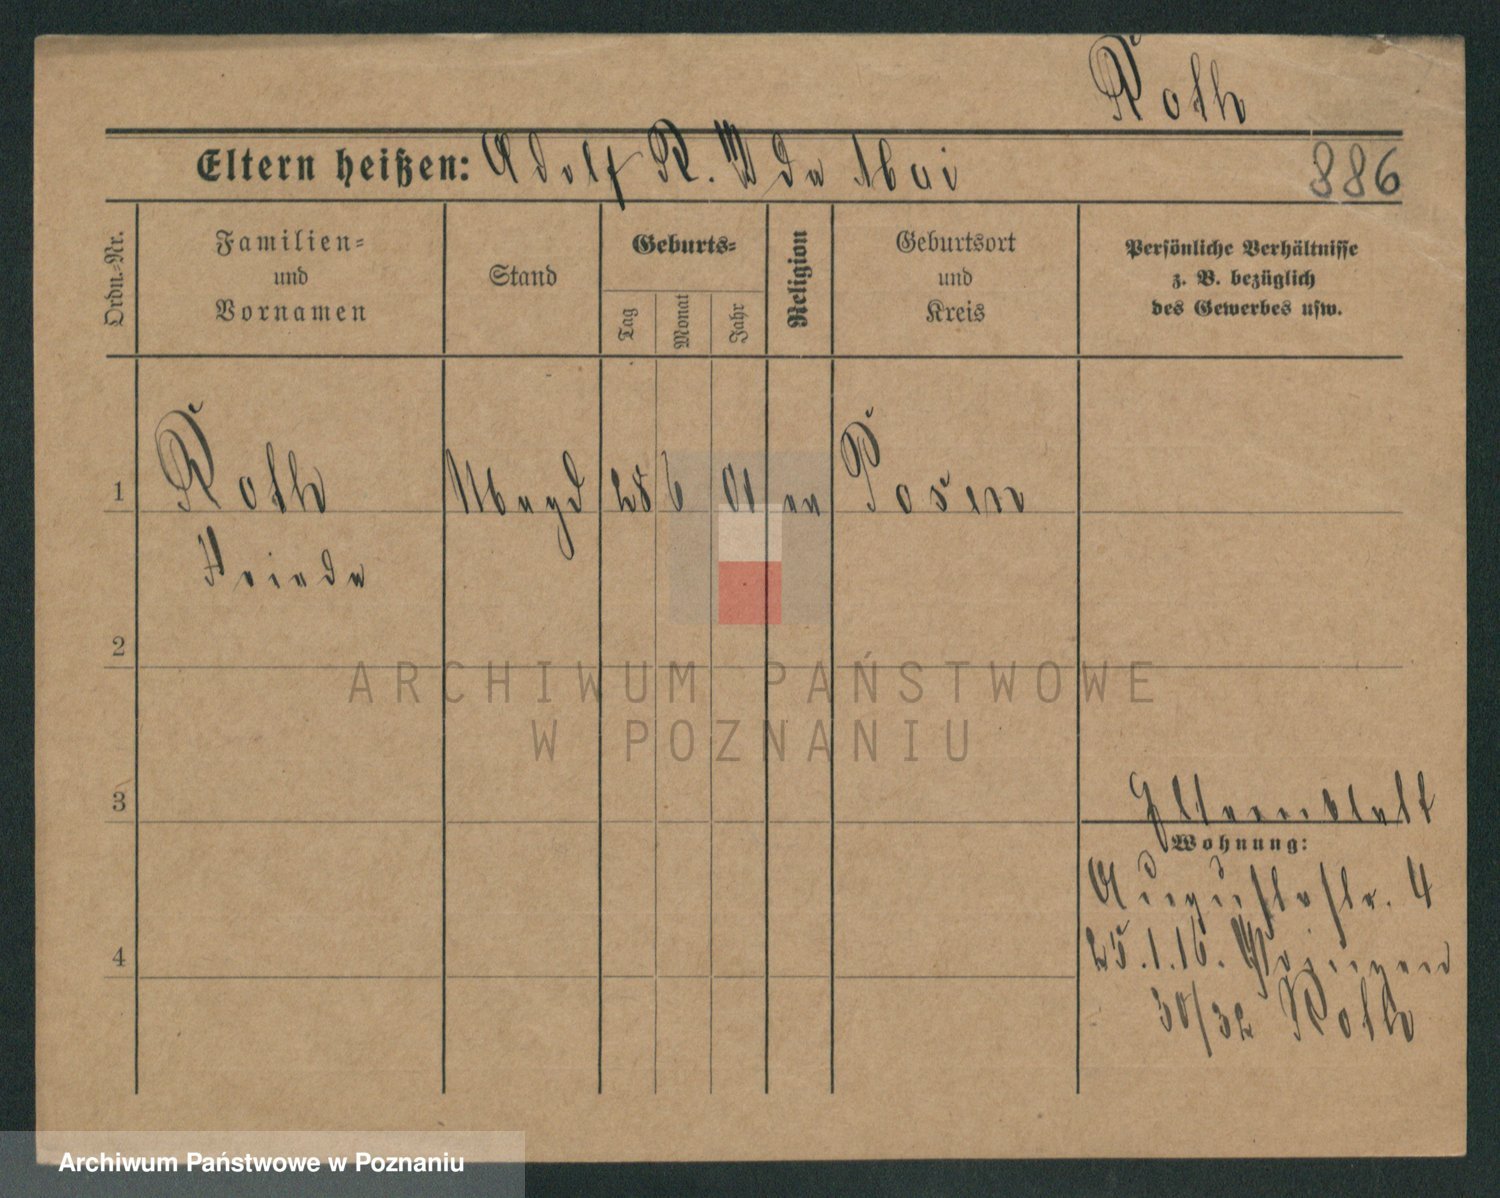 Roth
Eltern heißen: Adolf R. Ida Mai
886
Ordn.-Nr.
Familien-
und
Vornamen
Stand
Geburts-
Tag
Monat
Jahr
Religion
Geburtsort
und
Kreis
Persönliche Verhältnisse
z. B. bezüglich
des Gewerbes usw.
1
Roth
Magd
25
6
01
ev
Posen
Frieda
2
3
4
Wohnung:
Augustastr. 4
25.1.16.
30/32 Roth
ARCHIWUM PAŃSTWOWE
W POZNANIU
Archiwum Państwowe w Poznaniu